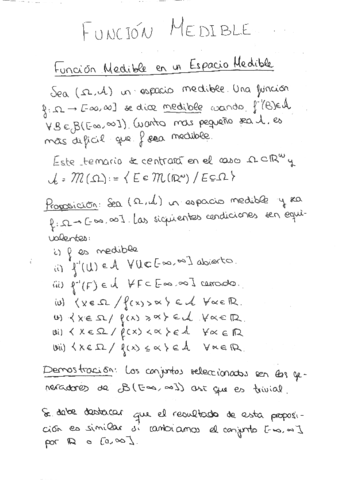 FUNCIÓN MEDIBLE
Función Medible en un Espacio Medible
Sea (Ω, A) un espacio medible. Una función
f: Ω → [-∞, ∞] se dice medible cuando f⁻¹(B) ∈ A
∀B ∈ B([-∞, ∞]). Cuanto más pequeño sea A, es
más difícil que f sea medible.
Este temario se centrará en el caso Ω ⊂ ℝᴺ y
A = M(Ω) := { E ∈ M(ℝᴺ) / E ⊆ Ω }
Proposición: Sea (Ω, A) un espacio medible y sea
f: Ω → [-∞, ∞]. Las siguientes condiciones son equi-
valentes:
i) f es medible
ii) f⁻¹(U) ∈ A ∀U ⊂ [-∞, ∞] abierto.
iii) f⁻¹(F) ∈ A ∀F ⊂ [-∞, ∞] cerrado.
iv) { x ∈ Ω / f(x) > α } ∈ A ∀α ∈ ℝ.
v) { x ∈ Ω / f(x) ≥ α } ∈ A ∀α ∈ ℝ.
vi) { x ∈ Ω / f(x) < α } ∈ A ∀α ∈ ℝ.
vii) { x ∈ Ω / f(x) ≤ α } ∈ A ∀α ∈ ℝ.
Demostración: Los conjuntos seleccionados son los ge-
neradores de B([-∞, ∞]) así que es trivial.
Se debe destacar que el resultado de esta proposi-
ción es similar si cambiamos el conjunto [-∞, ∞]
por ℝ o [0, ∞].